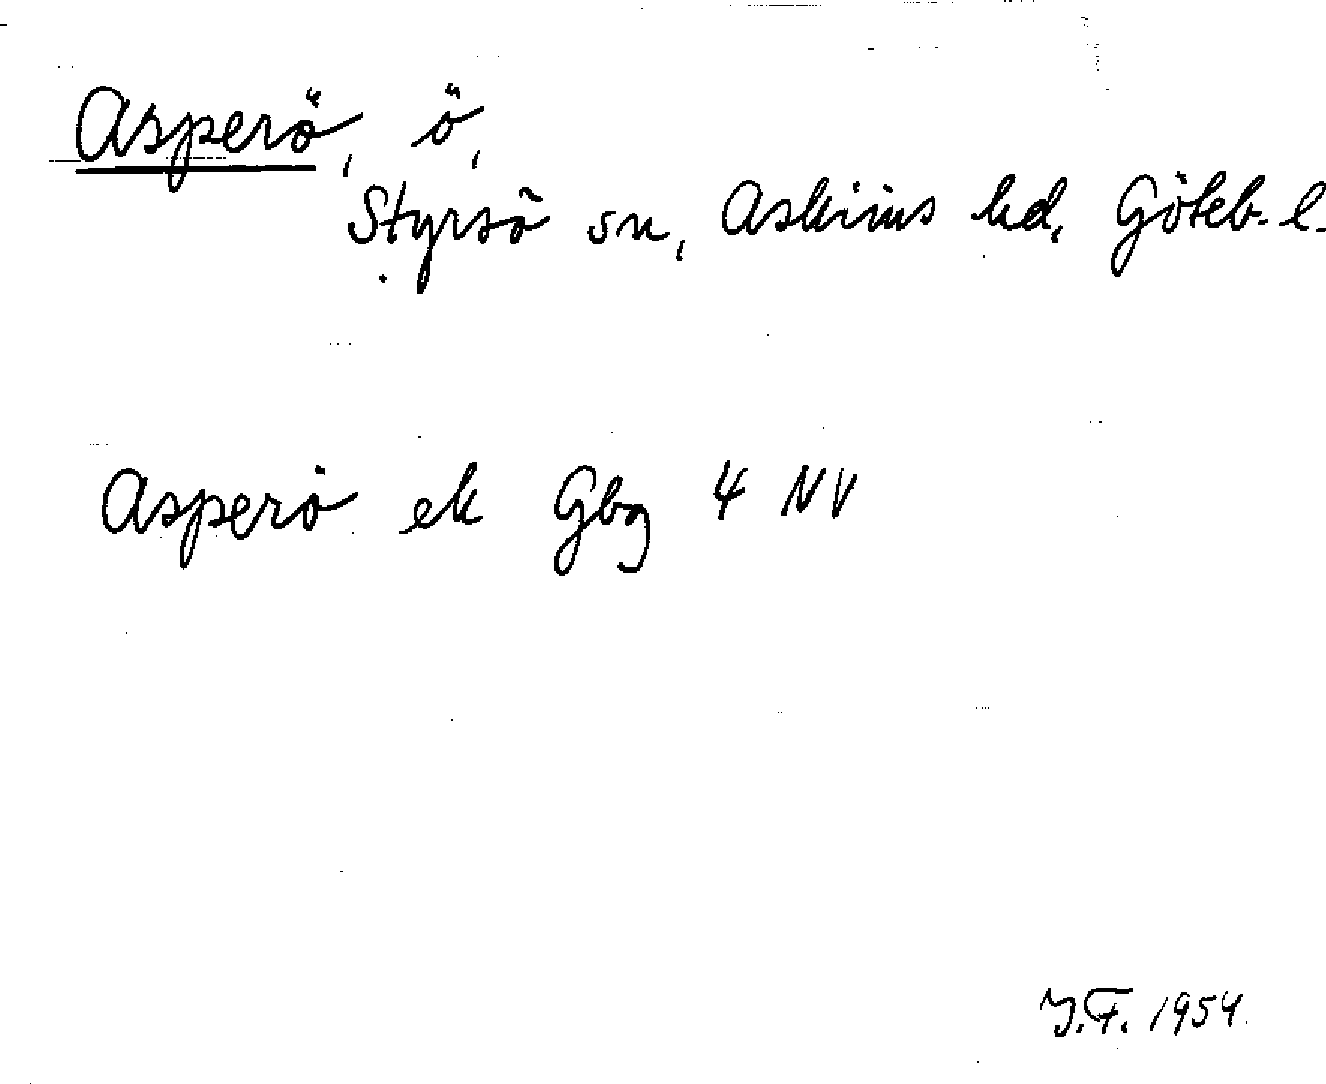 Asperö, ö,
Styrsö sn, Askims hd, Göteb. l.
Asperö ek Gbg 4 NV
J.F. 1954.